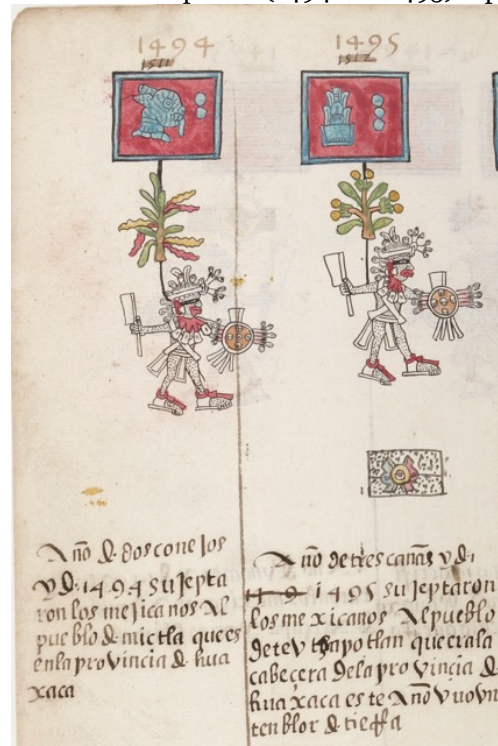 1494
1511
1495
1512
Año d. dos conejos
y d. 1494 sujepta
ron los mejicanos Al
pueblo d. mictla que es
en la provincia d. hua
xaca
Año de tres cañas y d.
1495 sujeptaron
los mexicanos Al pueblo
de teu tzapotlan que era la
cabecera de la provincia d.
huaxaca este Año vuo vn
tenblor de tierra